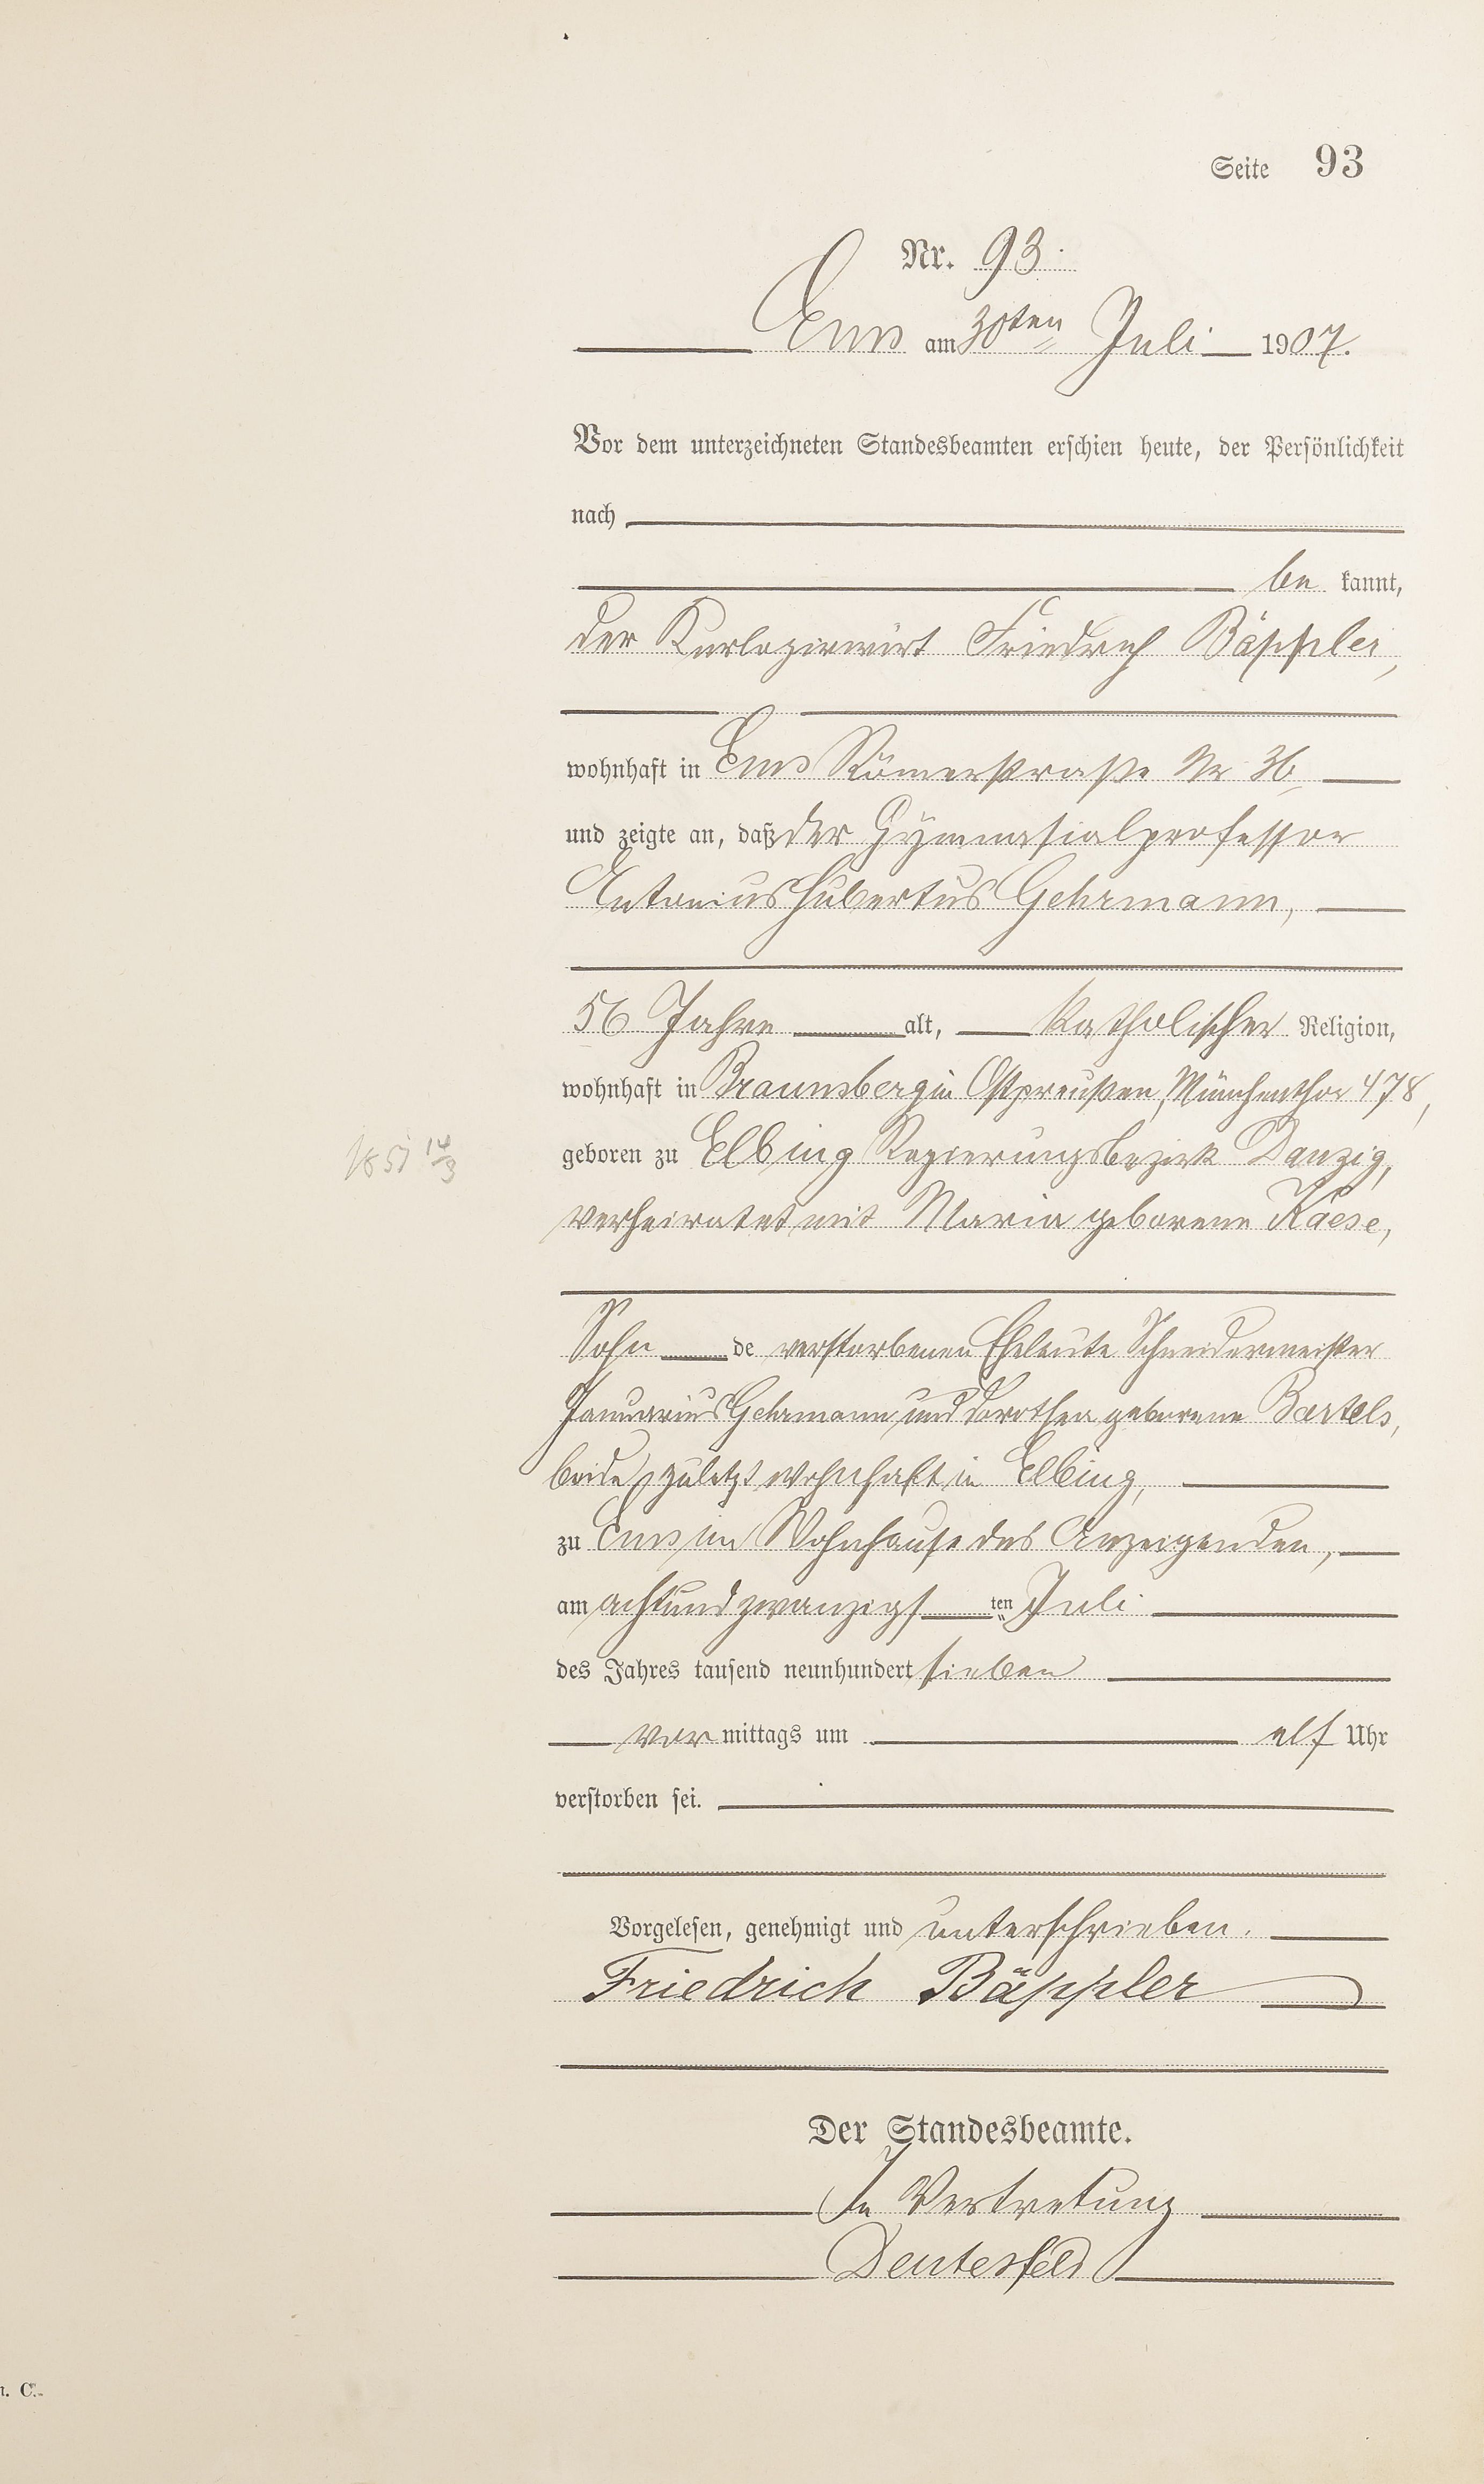 Seite 93
Nr. 93.
Ems am 30ten Juli 1907.
Vor dem unterzeichneten Standesbeamten erschien heute, der Persönlichkeit
nach
be kannt,
der Kurlogirwirt Friedrich Bäppler,
wohnhaft in Ems Römerstraße Nr 36,
und zeigte an, daß der Gymnasialprofessor
Antonius Hubertus Gehrmann,
56 Jahre alt, katholischer Religion,
wohnhaft in Braunsberg in Ostpreußen, Münchenthor 478,
1851 14/3
geboren zu Elbing Regierungsbezirk Danzig,
verheiratet mit Maria geborene Kaese,
Sohn de verstorbenen Eheleute Schneidermeister
Januarius Gehrmann und Dorothea geborene Bartels,
beide zuletzt wohnhaft in Elbing,
zu Ems im Wohnhause des Anzeigenden,
am achtundzwanzigs ten Juli
des Jahres tausend neunhundert sieben
vor mittags um elf Uhr
verstorben sei.
Vorgelesen, genehmigt und unterschrieben.
Friedrich Bäppler
Der Standesbeamte.
In Vertretung
Deutesfeld
. C.